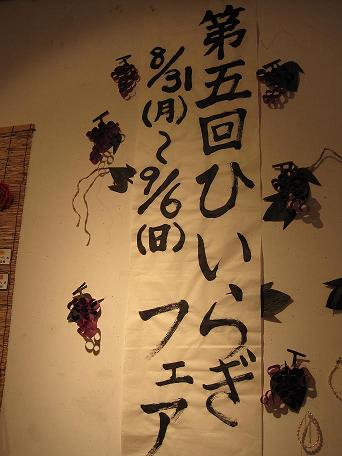 第五回ひいらぎ
フェア
8/31(月)~9/6(日)